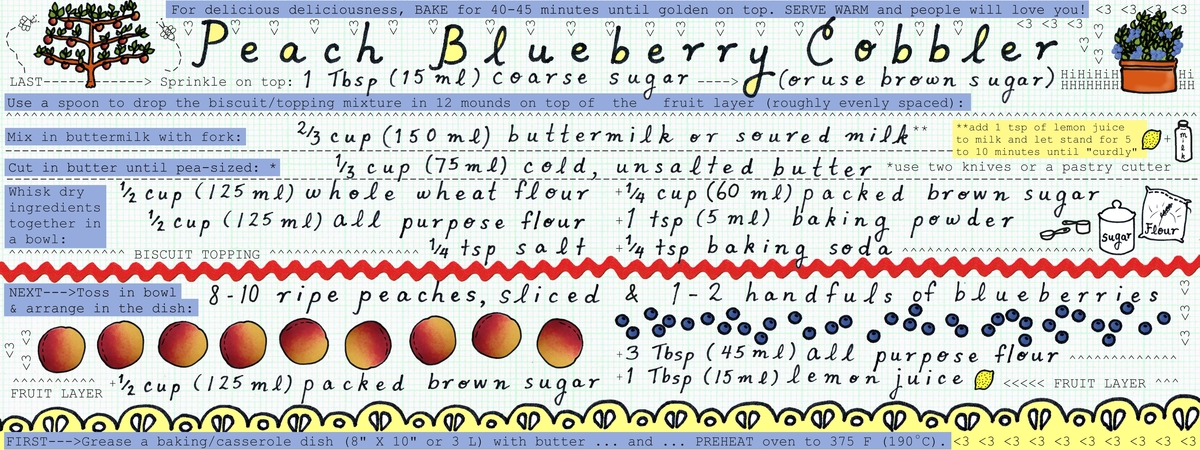 For delicious deliciousness, BAKE for 40-45 minutes until golden on top. SERVE WARM and people will love you! <3 <3 <3
Peach Blueberry Cobbler
LAST------------> Sprinkle on top: 1 Tbsp (15 ml) coarse sugar ----> (or use brown sugar)
HiHiHiH Hi
HHHHHHH HH
Use a spoon to drop the biscuit/topping mixture in 12 mounds on top of the fruit layer (roughly evenly spaced):
Mix in buttermilk with fork: 2/3 cup (150 ml) buttermilk or soured milk**
**add 1 tsp of lemon juice
to milk and let stand for 5
to 10 minutes until "curdly"
+
milk
Cut in butter until pea-sized: * 1/3 cup (75 ml) cold, unsalted butter *use two knives or a pastry cutter
Whisk dry
ingredients
together in
a bowl:
1/2 cup (125 ml) whole wheat flour +1/4 cup (60 ml) packed brown sugar
1/2 cup (125 ml) all purpose flour +1 tsp (5 ml) baking powder
1/4 tsp salt +1/4 tsp baking soda
sugar
Flour
^^^^^^^^^^^^^^ BISCUIT TOPPING ^^^^^^^^^^^^^^^^^
NEXT--->Toss in bowl
& arrange in the dish:
8-10 ripe peaches, sliced & 1-2 handfuls of blueberries
+3 Tbsp (45 ml) all purpose flour ^^^^^^^^^^^^^^
^^^^^^^^^^
FRUIT LAYER +1/2 cup (125 ml) packed brown sugar +1 Tbsp (15 ml) lemon juice <<<<< FRUIT LAYER ^^^
FIRST--->Grease a baking/casserole dish (8" X 10" or 3 L) with butter ... and ... PREHEAT oven to 375 F (190°C). <3 <3 <3 <3 <3 <3 <3 <3